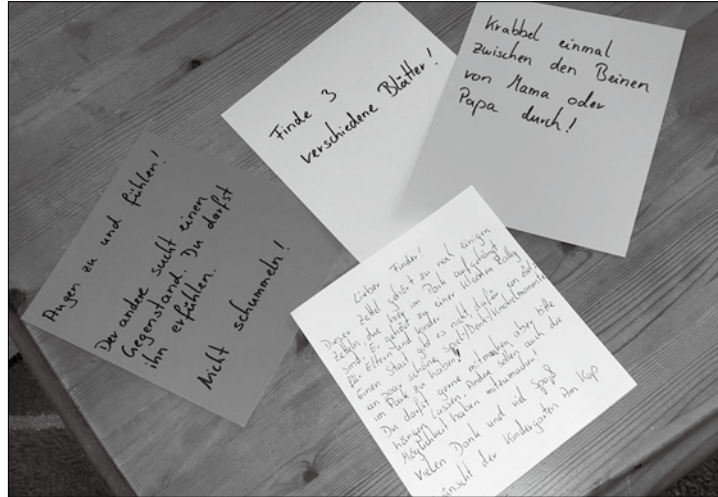 Augen zu und fühlen!
Der andere sucht einen
Gegenstand. Du darfst
ihn erfühlen.
Nicht schummeln!
Finde 3
verschiedene Blätter!
Krabbel einmal
zwischen den Beinen
von Mama oder
Papa durch!
Lieber Finder!
Dieser Zettel gehört zu noch einigen
Zetteln, die hier im Park aufgehängt
sind. Er gehört zu einer kleinen Ralley
für Eltern und Kinder.
Einen Start gibt es nicht, dafür ein
paar schöne Spiel/Denk/
im Park zu haben!
Du darfst gerne mitmachen, aber bitte
hängen lassen. Andere sollen auch die
Möglichkeit haben mitzumachen!
Vielen Dank und viel Spaß
wünscht der Kindergarten Am Kap